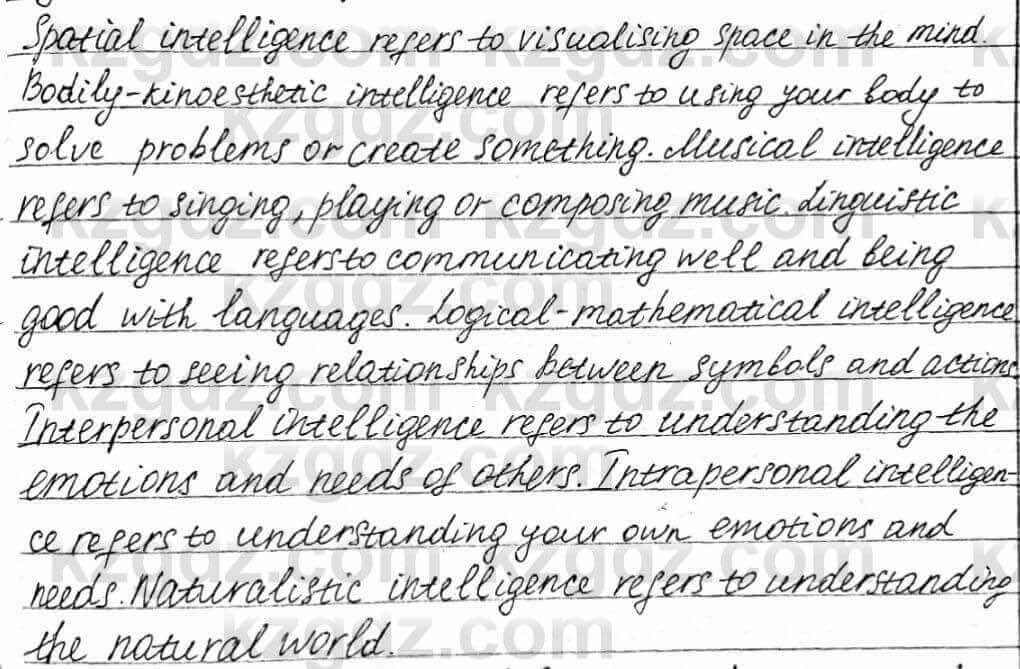 Spatial intelligence refers to visualising space in the mind.
Bodily-kinoesthetic intelligence refers to using your body to
solve problems or create something. Musical intelligence
refers to singing, playing or composing music. Linguistic
intelligence refers to communicating well and being
good with languages. Logical-mathematical intelligence
refers to seeing relationships between symbols and actions
Interpersonal intelligence refers to understanding the
emotions and needs of others. Intrapersonal intelligen-
ce refers to understanding your own emotions and
needs. Naturalistic intelligence refers to understanding
the natural world.